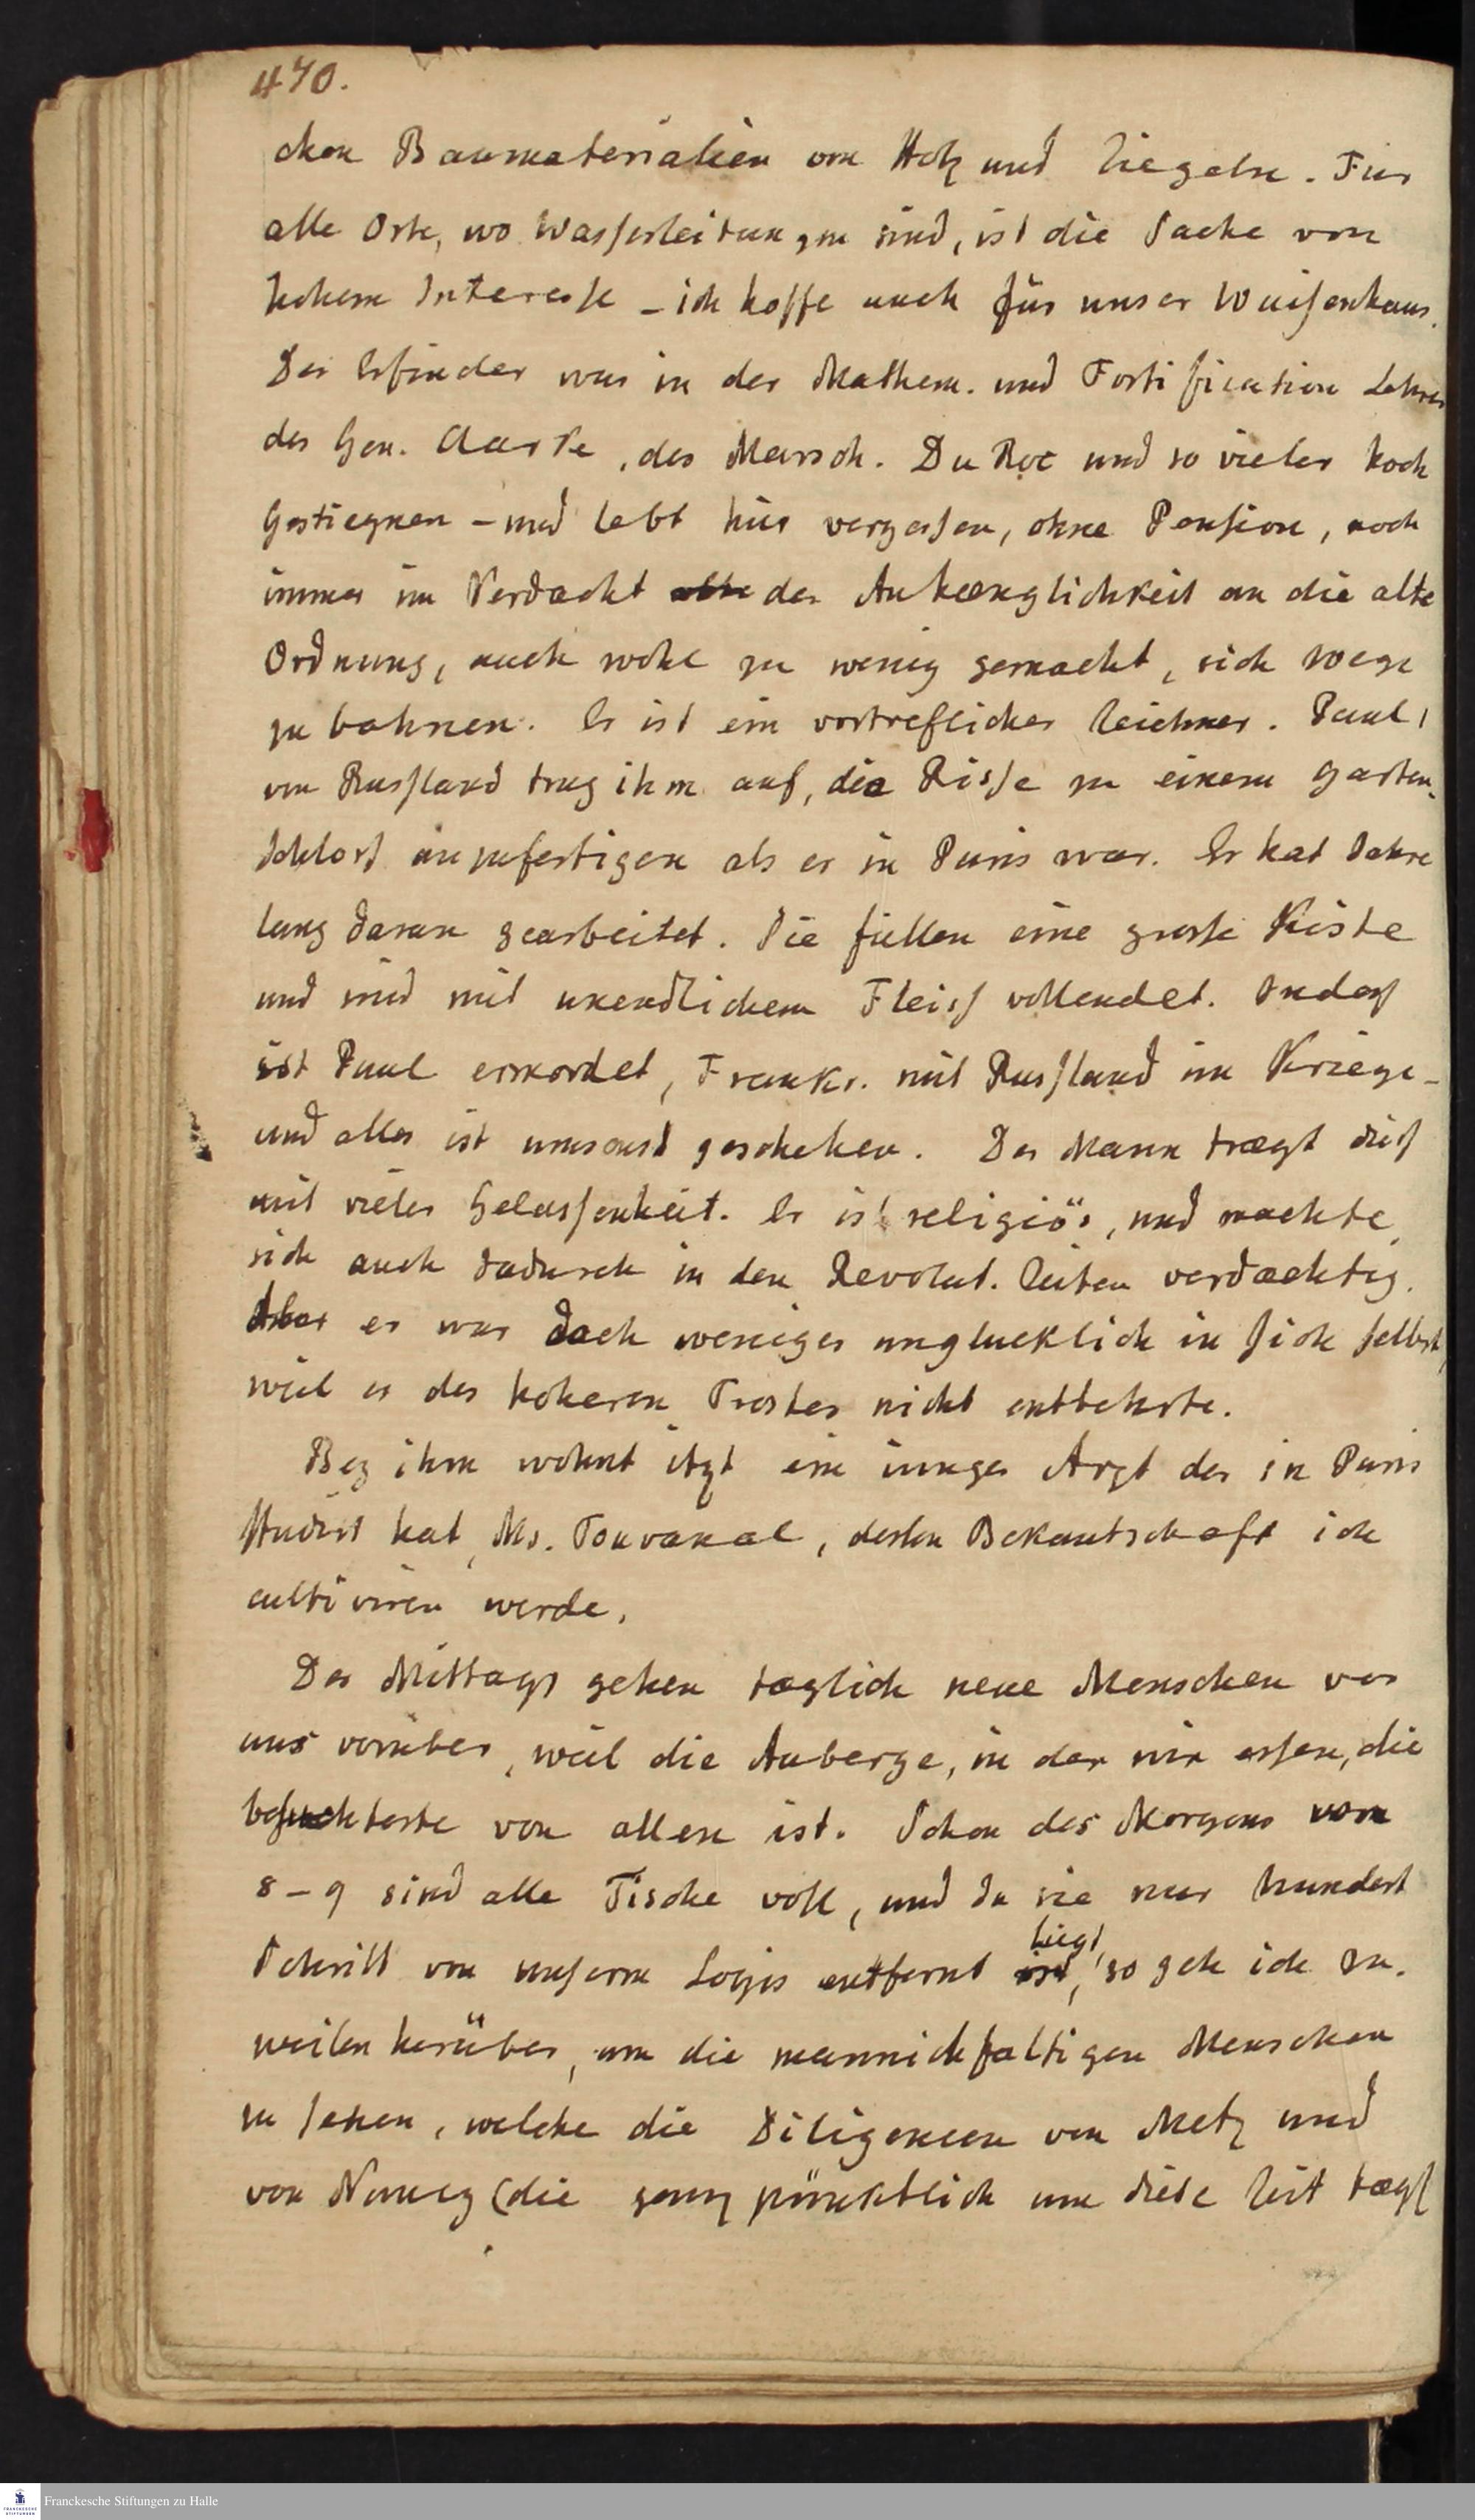 470.
chen Baumaterialien von Holz und Ziegeln. Für
alle Orte, wo Wasserleitungen sind, ist die Sache von
hohem Interesse – ich hoffe auch für unser Waisenhaus.
Der Erfinder war in der Mathem. und Fortification Lehrer
des Gen. Clarke, des Marsch. Du Roc und so vieler hoch
Gestiegnen – und lebt hier vergessen, ohne Pension, noch
immer im Verdacht der Anhænglichkeit an die alte
Ordnung, auch wohl zu wenig gemacht, sich Wege
zu bahnen. Er ist ein vortreflicher Zeichner. Paul I
von Russland trug ihm auf, die Risse zu einem Garten-
schloss anzufertigen als er in Paris war. Er hat Jahre
lang daran gearbeitet. Sie füllen eine grosse Kiste
und sind mit unendlichem Fleiss vollendet. Indess
ist Paul ermordet, Frankr. mit Russland im Kriege –
und alles ist umsonst geschehen. Der Mann trægt dies
mit vieler Gelassenheit. Er ist religiös, und machte
sich auch dadurch in den Revolut. Zeiten verdæchtig.
Aber er war doch weniger unglucklich in sich selbst,
weil er des hoheren Trostes nicht entbehrte.
Bey ihm wohnt itzt ein iunger Arzt der in Paris
studirt hat, Mr. Touvanal, dessen Bekantschaft ich
cultiviren werde.
Des Mittags gehen tæglich neue Menschen vor
uns vorüber, weil die Auberge, in der wir essen, die
besuchteste von allen ist. Schon des Morgens von
8 – 9 sind alle Tische voll, und da sie nur hundert
Schritt von unserm Logis entfernt liegt, so geh ich zu-
weilen herüber, um die mannichfaltigen Menschen
zu sehen, welche die Diligencen von Metz und
von Nancy (die ganz pünktlich um diese Zeit tægl
Franckesche Stiftungen zu Halle